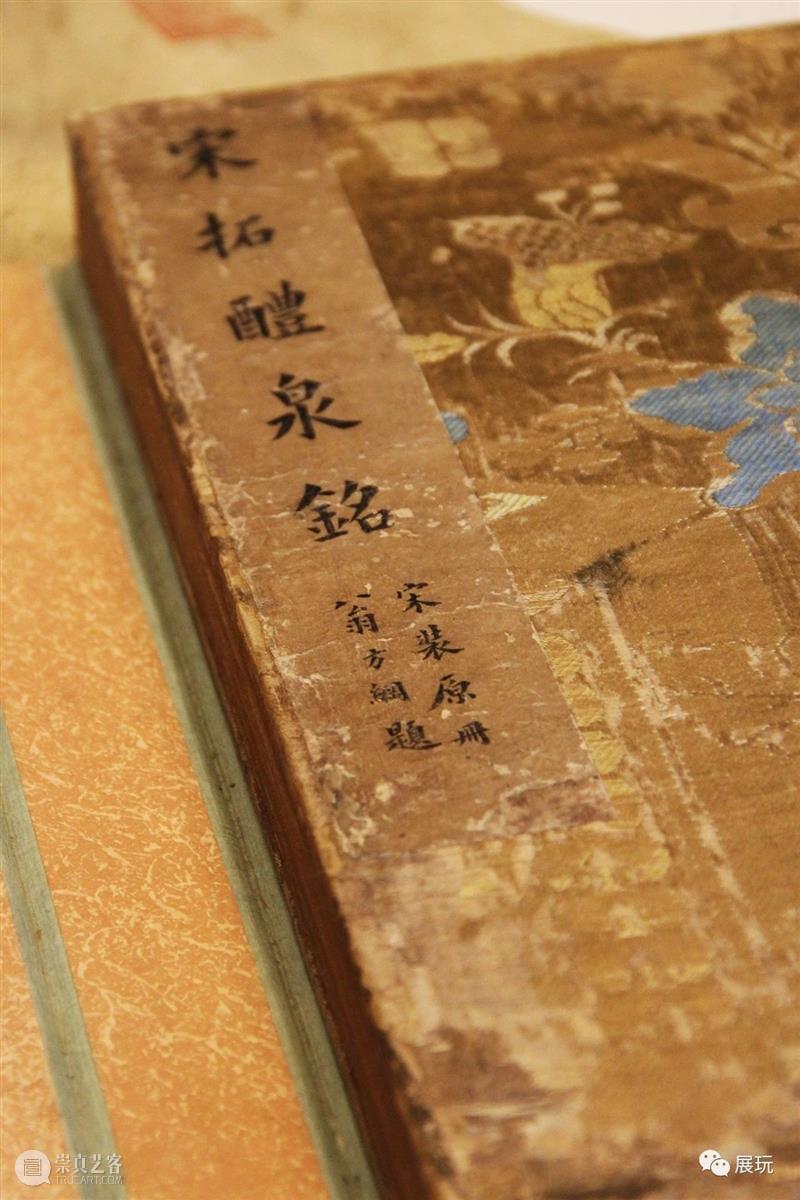 宋拓醴泉銘
宋裝原冊
翁方綱題
崇真艺客
TRUEART.COM
展玩